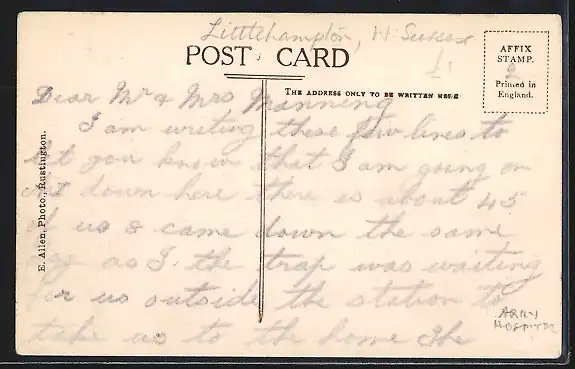 Littlehampton, W. Sussex
POST CARD
AFFIX
STAMP.
Printed in
England.
THE ADDRESS ONLY TO BE WRITTEN HERE
E. Allen, Photo., Rustington.
Dear Mr & Mrs Manning
I am writing these few lines to
let you know that I am going on
down here there is about 45
of us & came down the same
as I. the trap was waiting
for us outside the station to
take us to the home the
ARMY
HOSPITAL